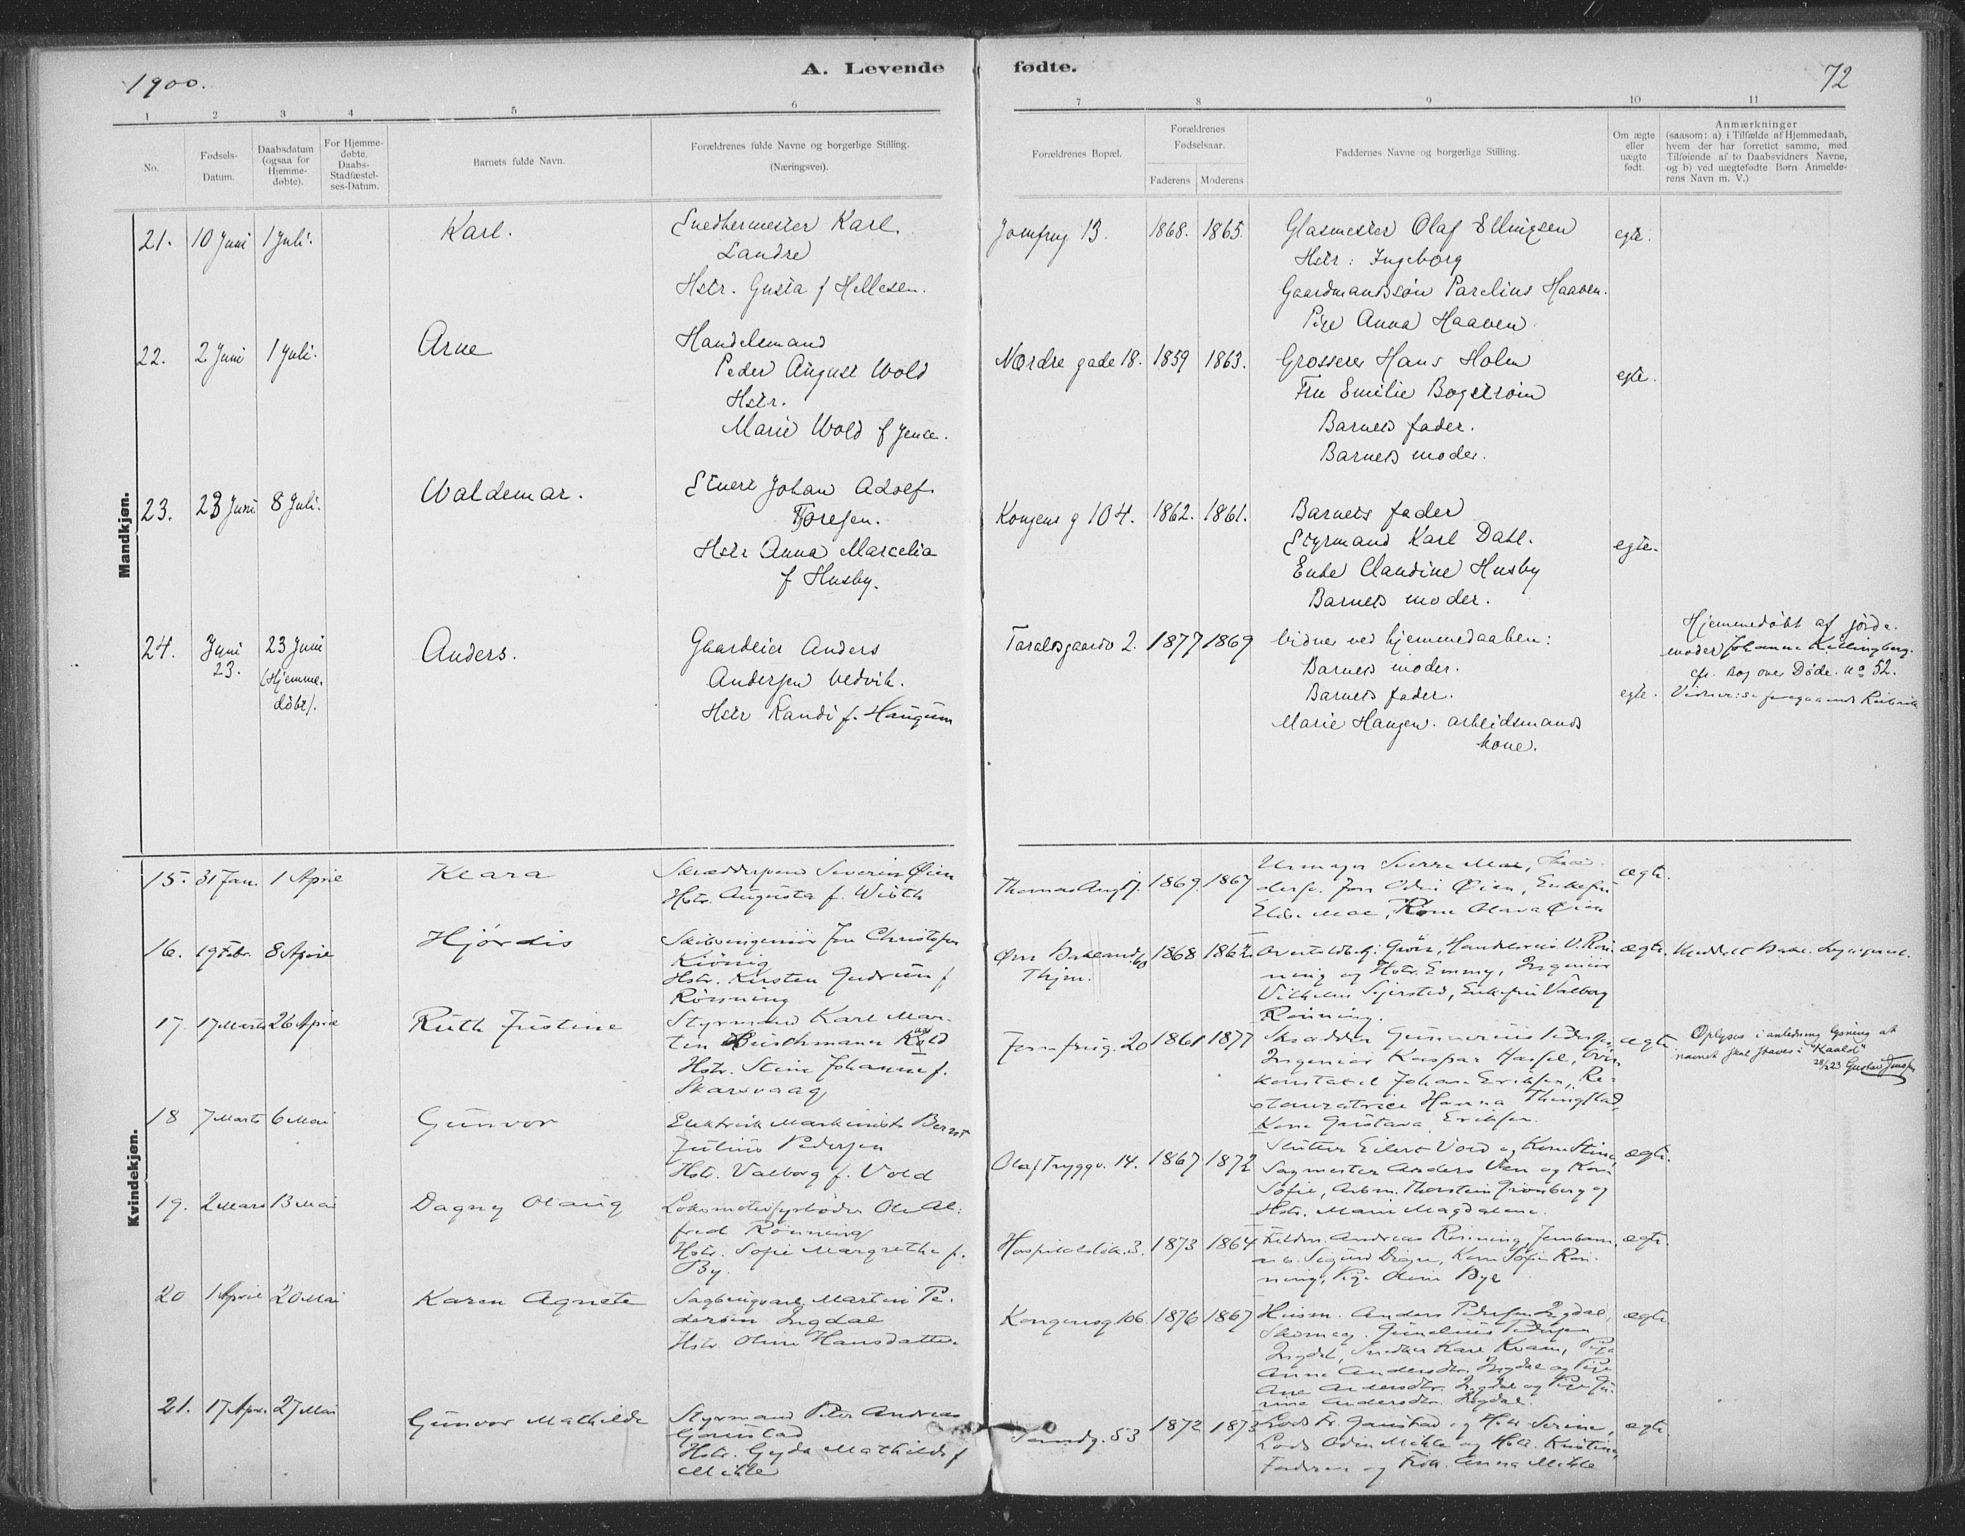 1900.
A. Levende fødte.
72
1 2 3 4 5 6 7 8 9 10 11
No.
Fødsels-Datum.
Daabsdatum (ogsaa for Hjemme-døbte).
For Hjemme-døbte. Daabs-Stadfæstel-ses-Datum.
Barnets fulde Navn.
Forældrenes fulde Navne og borgerlige Stilling.
(Næringsvei).
Forældrenes Bopæl.
Forældrenes Fødselsaar.
Faderens Moderens
Faddernes Navne og borgerlige Stilling.
Om ægte eller uægte født.
Anmærkninger
(saasom: a) i Tilfælde af Hjemmedaab,
hvem der har forrettet samme, med
Tilføiende af to Daabsvidners Navne,
og b) ved uægtefødte Børn Anmelde-
rens Navn m. V.)
Mandkjøn.
21. 10 Juni 1 Juli. Karl.
Snedkermester Karl
Landre
Hstr. Gusta f Hellesen.
Jomfrug 13. 1868. 1865.
Glasmester Olaf Ellingsen
Hstr: Ingeborg
Gaardmandssøn Parelius Haaven.
Pige Anna Haaven.
egte.
22. 2 Juni 1 Juli. Arne
Handelsmand
Peder August Wold
Hstr.
Marie Wold f Jense.
Nordre gade 18. 1859 1863.
Grosserer Hans Holm
Fru Emilie Bogstrøm
Barnets fader.
Barnets moder.
egte.
23. 23 Juni 8 Juli. Waldemar.
Stuert Johan Adolf
Toresen.
Hstr Anna Marcelia
f Husby.
Kongens g 104. 1862. 1861.
Barnets fader
Styrmand Karl Dahl.
Enke Claudine Husby
Barnets moder.
egte.
24. Juni 23. 23 Juni (Hjemme-døbt). Anders.
Gaardeier Anders
Andersen Vedvik.
Hstr Randi f. Haugum
Taraldsgaards 2. 1877 1869
Vidner ved hjemmedaaben:
Barnets moder.
Barnets fader.
Marie Haugen. arbeidsmands
kone.
egte.
Hjemmedøbt af jorde-
moder Johanne Kellingberg.
cfr. Bog over Døde. no 52.
Kvindekjøn.
15. 31 Jan. 1 April Klara
Skræddersvend Severin Øien
Hstr. Augusta f. Wisth
Thomas Angl 7. 1869. 1867
Urmager Sverre Moe,
Jon Odin Øien, Enkefru
Elise Moe, Kone Olava Øien
ægte.
16. 19 Febr. 8 April Hjørdis
Skibsingeniør Jon Christofer
Kiønig
Hstr. Kirsten Gudrun f.
Rønning
Øvr Bakland 60 Thjm. 1868 1862
Grøn, Handlende V. Røn-
ning og Hstr. Emmy, Ingeniør
Vilhelm Sejersted, Enkefru Valborg
Rønning.
ægte.
17. 17 Marts 26 April Ruth Justine
Styrmand Karl Mar-
tin Buschmann Kald
Hstr. Stine Johanne f.
Skarsvaag
Jomfrug. 20 1861 1877
Skrædder Gunnerius Pedersen,
Ingeniør Kaspar Hassel, Over-
konstabel Johan Eriksen, Re-
stauratrice Hanna Thingstad,
Kone Gustava Eriksen.
ægte
Oplyses i anledning lysning at
navnet skal staves: "Kaald"
28/2 23 Gustav Jensen
18 7 Marts 6 Mai Gunvor
Elektrisk Maskinist Bernt
Julius Pedersen
Hstr. Valborg f. Vold
Olaf Tryggv. 14. 1867 1872
Slutter Eilert Vold og Kone Stine,
Sagmester Anders Vien og Kone
Sofie, Arbm. Thorstein Grønberg og
Hstr. Marie Magdalene.
ægte.
19. 2 Mars 13 Mai Dagny Olaug
Lokomotivfyrbøder Ole Al-
fred Rønning
Hstr. Sofie Margrethe f.
By.
Hospitalsløk. 3. 1873 1864
Feldm. Andreas Rønning, Jernban-
arb. Sigurd Digre, Kone Sofie Røn-
ning, Pige Oline Bye
ægte.
20 1 April 20 Mai Karen Agnete
Sagbrugsarb. Martin Pe-
dersen Ingdal
Hstr Oline Hansdatter
Kongensg. 106. 1876 1867
Husm. Anders Pedersen Ingdal,
Skomag. Gunelius Pedersen
Ingdal, Snedker Karl Kvam, Pige
Anne Andersdtr. Ingdal og Pige
Ane Andersdtr. Ingdal og Pige Gu-
rine Andersdtr. Ingdal.
ægte.
21. 17 Apr. 27 Mai Gunvor Mathilde
Styrmand Peter Andreas
Gjønstad
Hstr. Gyda Mathilde f.
Mikle
Sandg. 53 1872 1873
Lods Fr. Gjønstad og Hstr Serine,
Lods Odin Mikle og Hstr. Kristine,
Faderen og Frk. Anna Mikle
ægte.